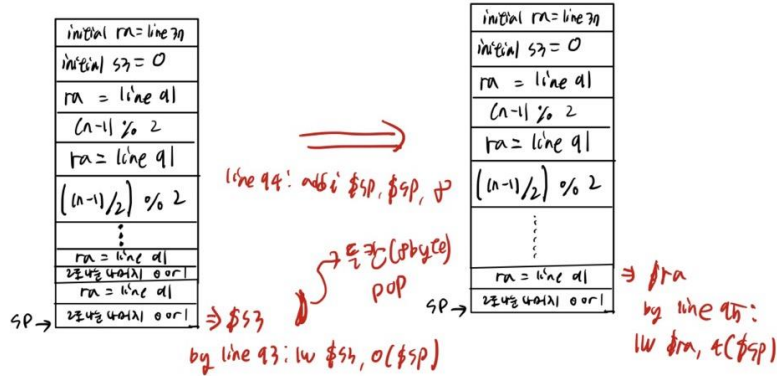 initial ra = line 37
initial s3 = 0
ra = line 91
(n-1) % 2
ra = line 91
((n-1)/2) % 2
ra = line 91
2로 나눈 나머지 0 or 1
ra = line 91
2로 나눈 나머지 0 or 1
sp →
⇒ $s3
by line 93: lw $s3, 0($sp)
line 94: addi $sp, $sp, 8
두칸(8byte)
pop
initial ra = line 37
initial s3 = 0
ra = line 91
(n-1) % 2
ra = line 91
((n-1)/2) % 2
ra = line 91
2로 나눈 나머지 0 or 1
sp →
⇒ $ra
by line 95:
lw $ra, 4($sp)